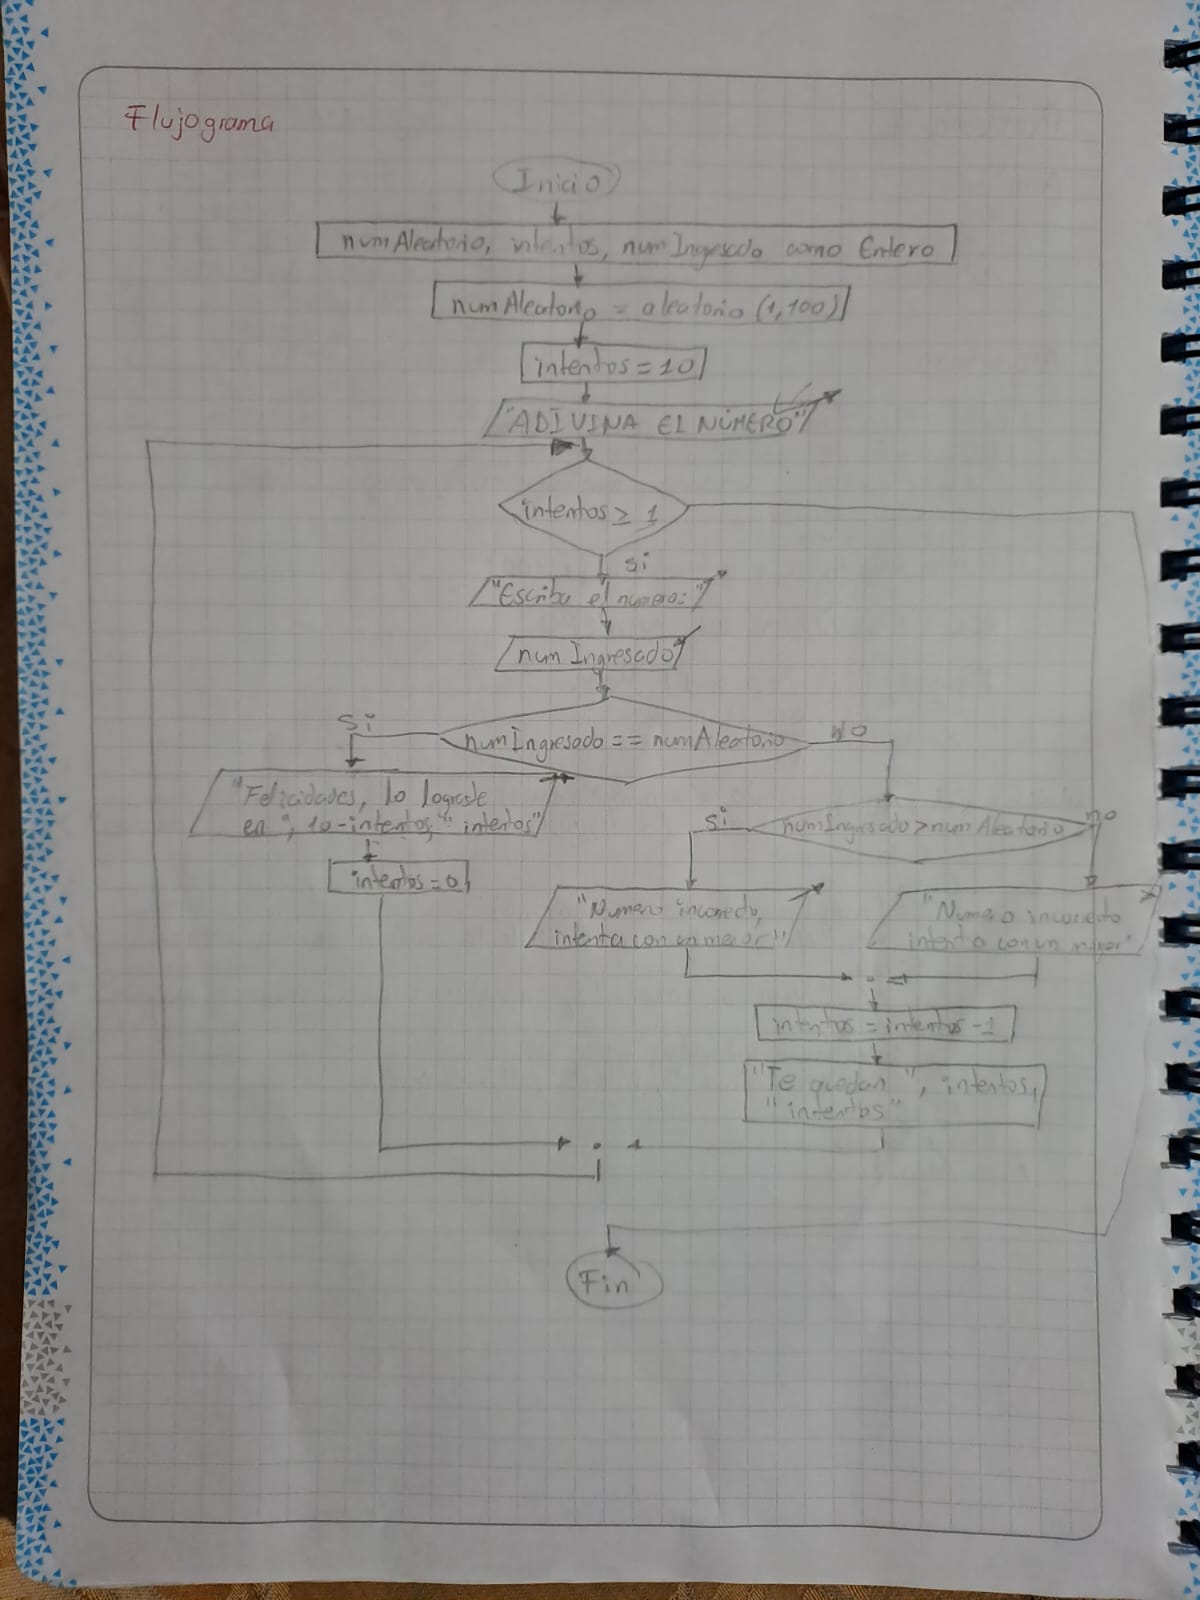 Flujograma
Inicio
numAleatorio, intentos, numIngresado como Entero
numAleatorio = aleatorio (1,100)
intentos = 10
"ADIVINA EL NÚMERO"
intentos ≥ 1
si
"Escribe el numero: "
numIngresado
si
numIngresado == numAleatorio
NO
"Felicidades, lo lograste
en ", 10-intentos, " intentos"
si
numIngresado > numAleatorio
no
intentos = 0
"Numero incorrecto,
intenta con un menor"
"Numero incorrecto
intenta con un mayor"
intentos = intentos -1
"Te quedan ", intentos,
"intentos"
Fin